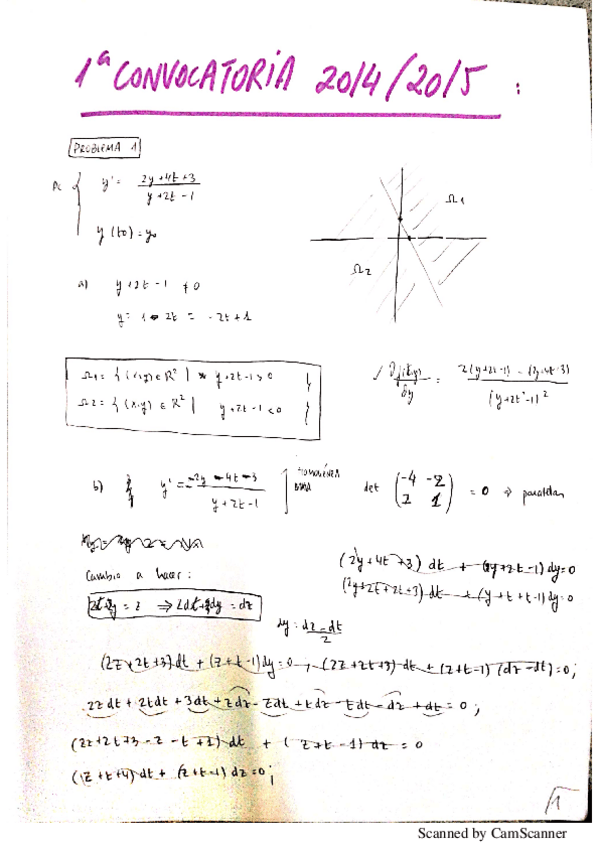 1ª CONVOCATORIA 2014/2015:
PROBLEMA 1
y' = 2y+4t+3 / y+2t-1
y(t0)=y0
Ω1
Ω2
a) y+2t-1 ≠0
y= 1-2t = -2t+1
Ω1= { (x,y) ∈ R² | y+2t-1>0 }
Ω2= { (x,y) ∈ R² | y+2t-1<0 }
= 2(y+2t-1) - (2y+4t+3) / (y+2t-1)²
b) y' = -2y-4t-3 / y+2t-1
det (-4 -2 2 1) = 0 ⇒ paralelas
Cambio a hacer:
(2y+4t+3) dt + (y+2t-1)dy=0
(2y+2t+2t+3) dt + (y+t+t-1)dy=0
dy = dz-dt / 2
(2z+2t+3)dt + (z+t-1)dy=0, (2z+2t+3)dt + (z+t-1)(dz-dt)=0;
2zdt + 2tdt + 3dt + zdz - zdt + tdz - tdt - dz + dt = 0;
(2z+2t+3-z-t+1)dt + (z+t-1)dz = 0
(z+t+4)dt + (z+t-1)dz=0;
1
Scanned by CamScanner